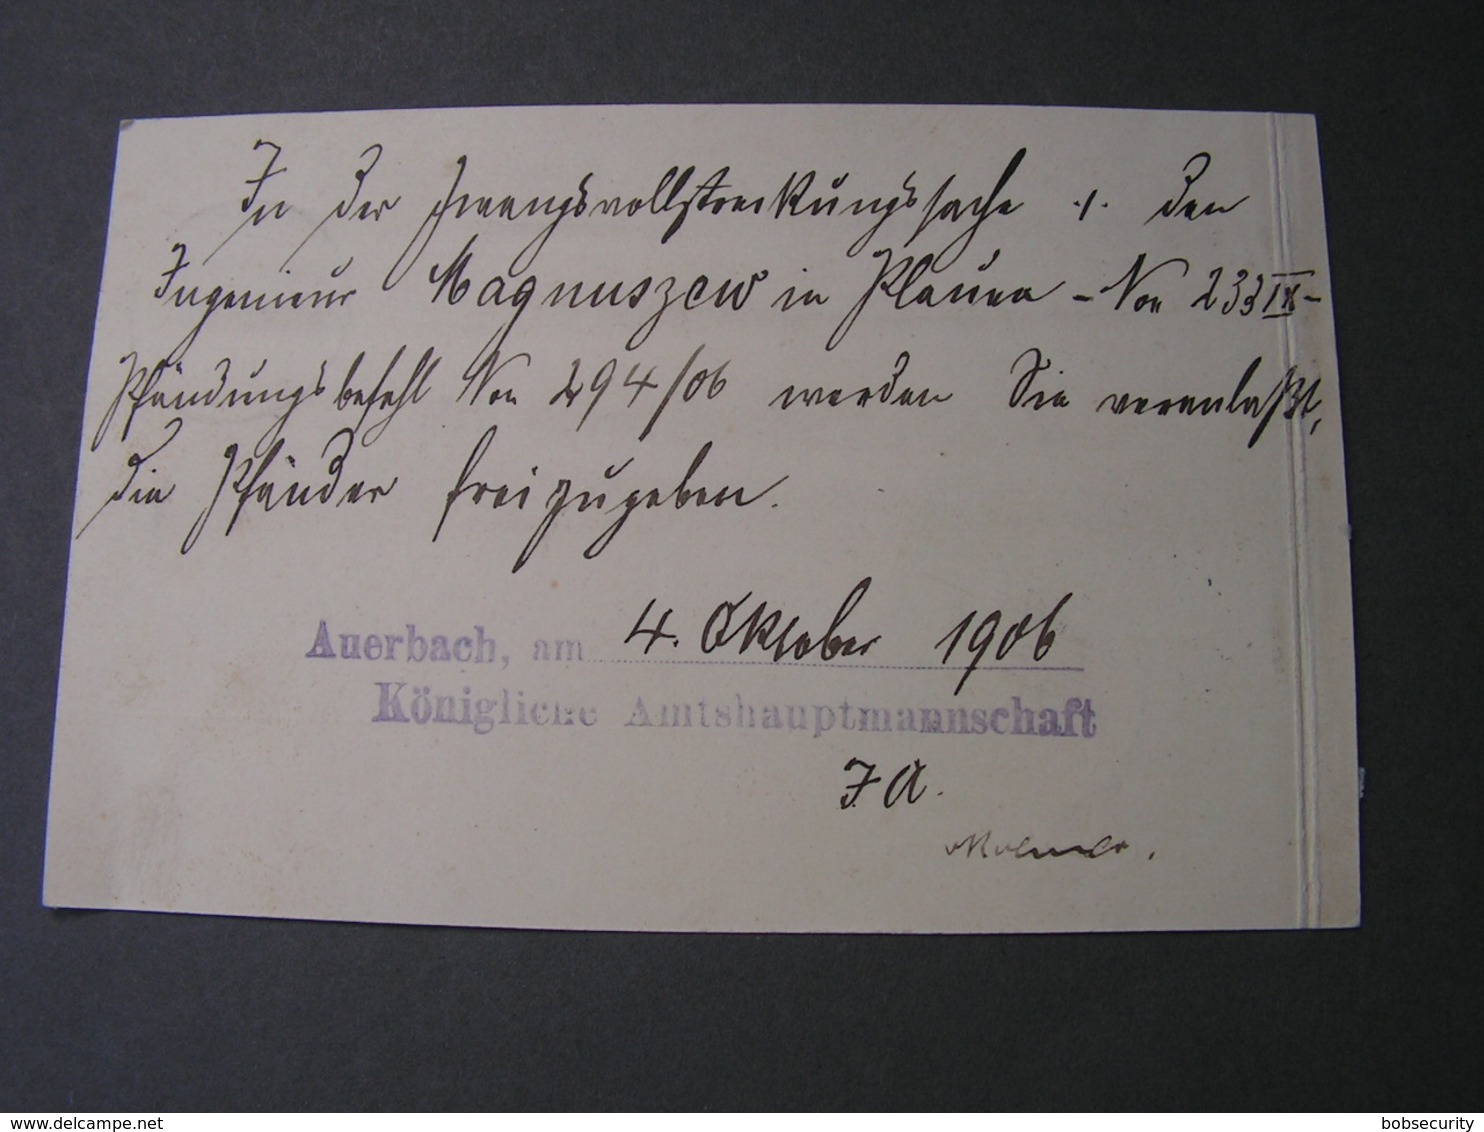 In der Zwangsvollstreckungssache ./. den
Ingenieur Magnuszew in Plauen – No 233 IX –
Pfändungsbefehl No 294/06 werden Sie veranlaßt,
die Pfänder freizugeben.
Auerbach, am 4. Oktober 1906
Königliche Amtshauptmannschaft
I. A.
delcampe.net
bobsecurity